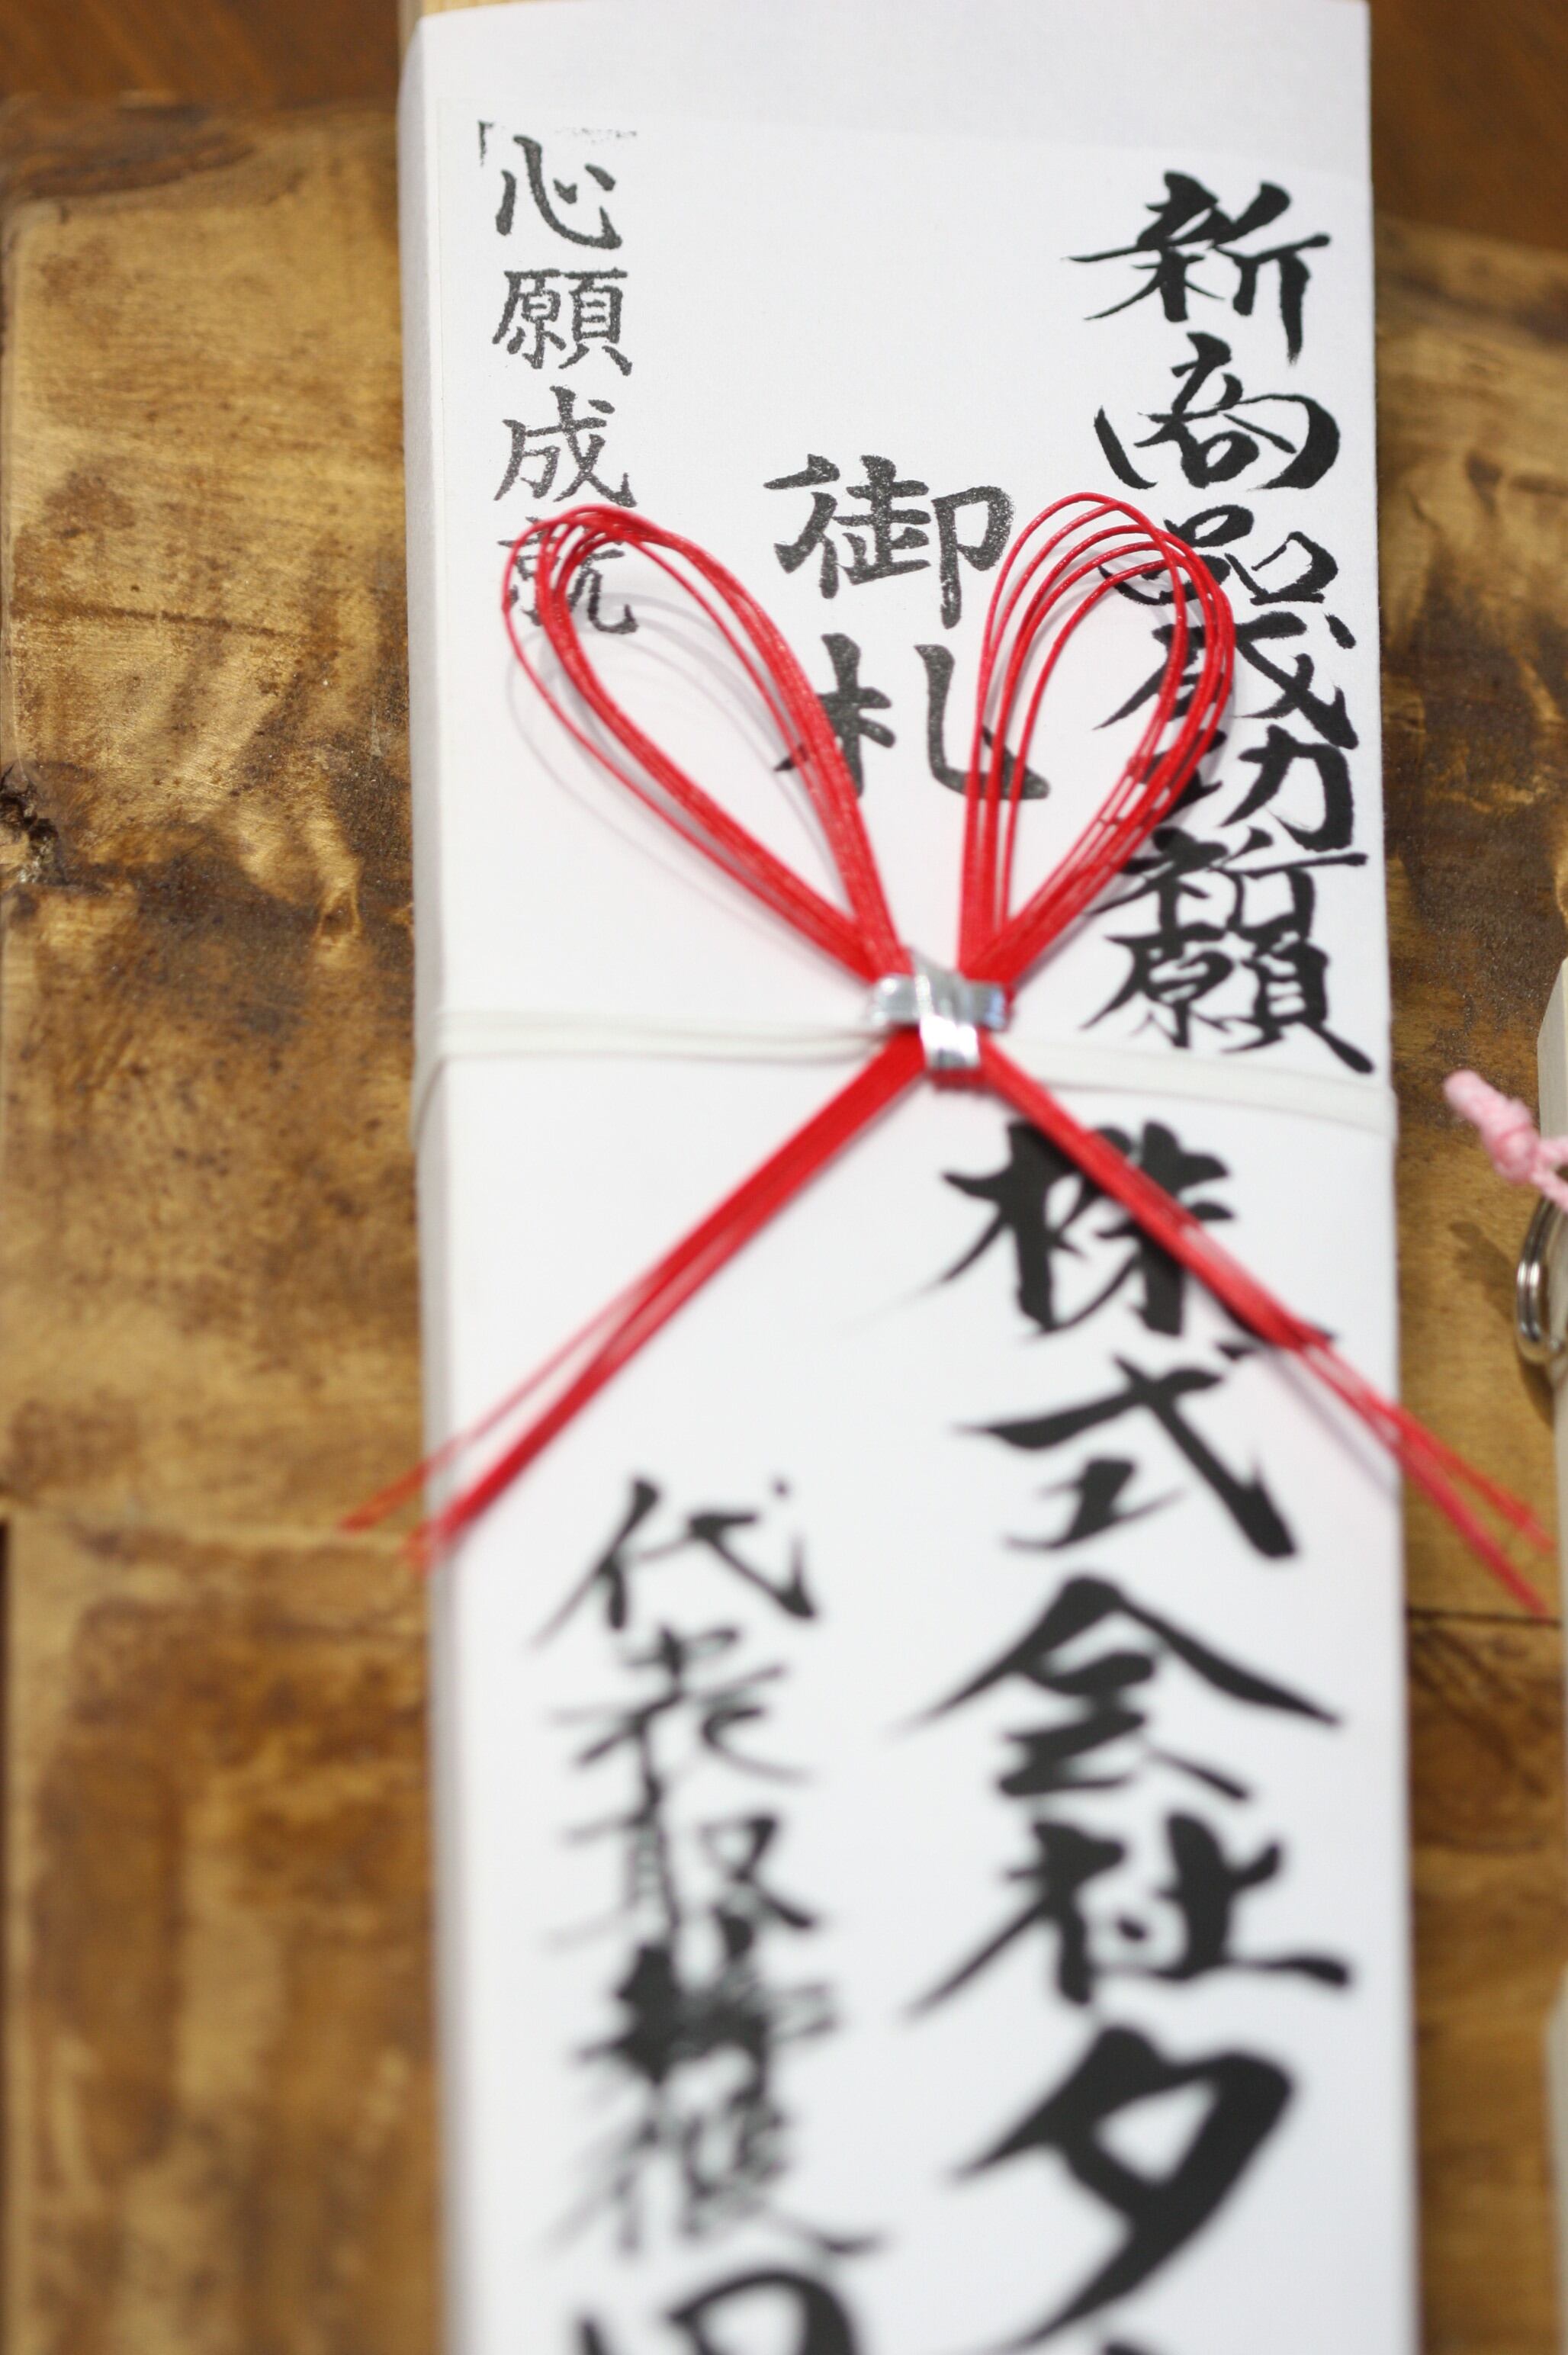 新商品成功祈願
株式会社タ
御札
心願成就
代表取締役